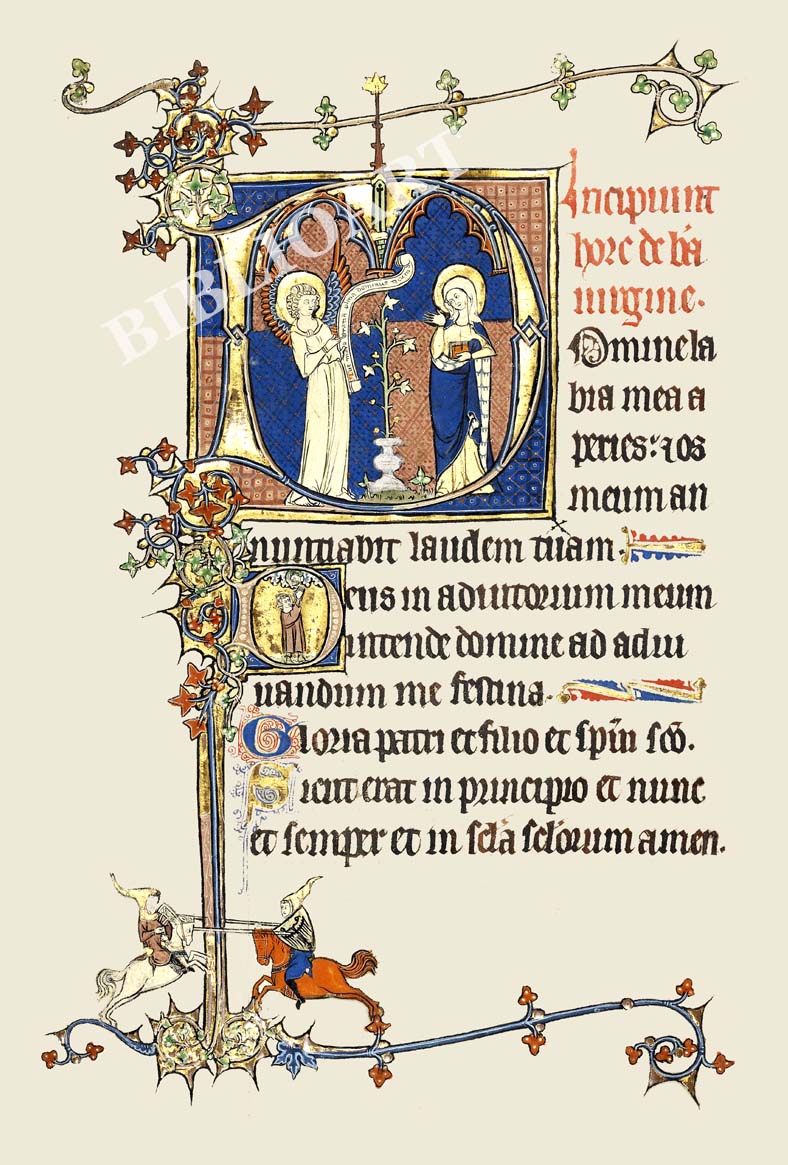 BIBLIOART
Incipiunt
hore de bā
uirgine.
Domine la
bia mea a
peries: ⁊ os
meum an
nuntiabit laudem tuam.
Deus in adiutorium meum
intende domine ad adiu
uandum me festina.
Gloria patri et filio et spīu scō.
Sicut erat in principio et nunc
et semper et in sclā sclōrum amen.